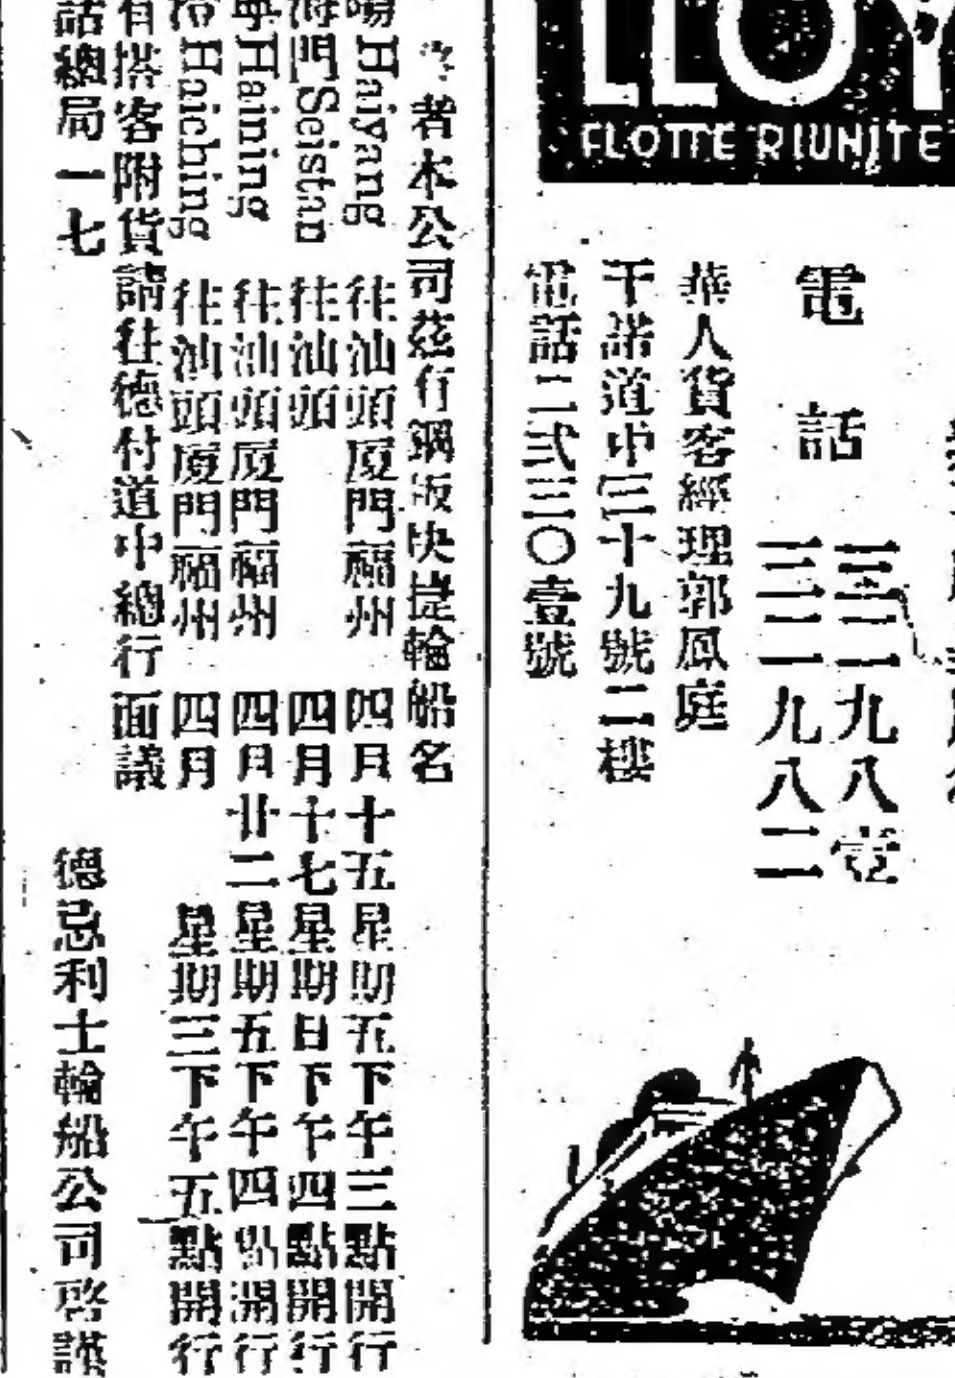 LLOY
FLOTTE RIUNITE
電話 三三二一九八壹
三三二一九八二
華人貨客經理郭鳳庭
干諾道中三十九號二樓
電話二式三〇壹號
者本公司茲有鋼板快捷輪船名
陽Haiyang 往汕頭廈門福州 四月十五星期五下午三點開行
海門Seistan 往汕頭 四月十七星期日下午四點開行
寧Haining 往汕頭廈門福州 四月廿二星期五下午四點開行
Haiching 往汕頭廈門福州 四月 星期三下午五點開行
有搭客附貨請往德付道中總行面議
話總局一七
德忌利士輪船公司啓謹